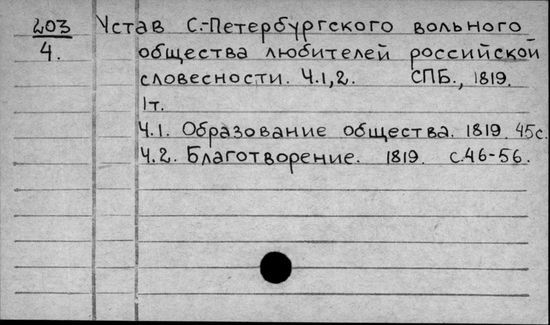 203 Устав С.-Петербургского вольного
4. общества любителей российской
словесности. Ч.1,2. СПБ., 1819.
1т.
Ч.1. Образование общества. 1819. 45с.
Ч.2. Благотворение. 1819. с.46-56.